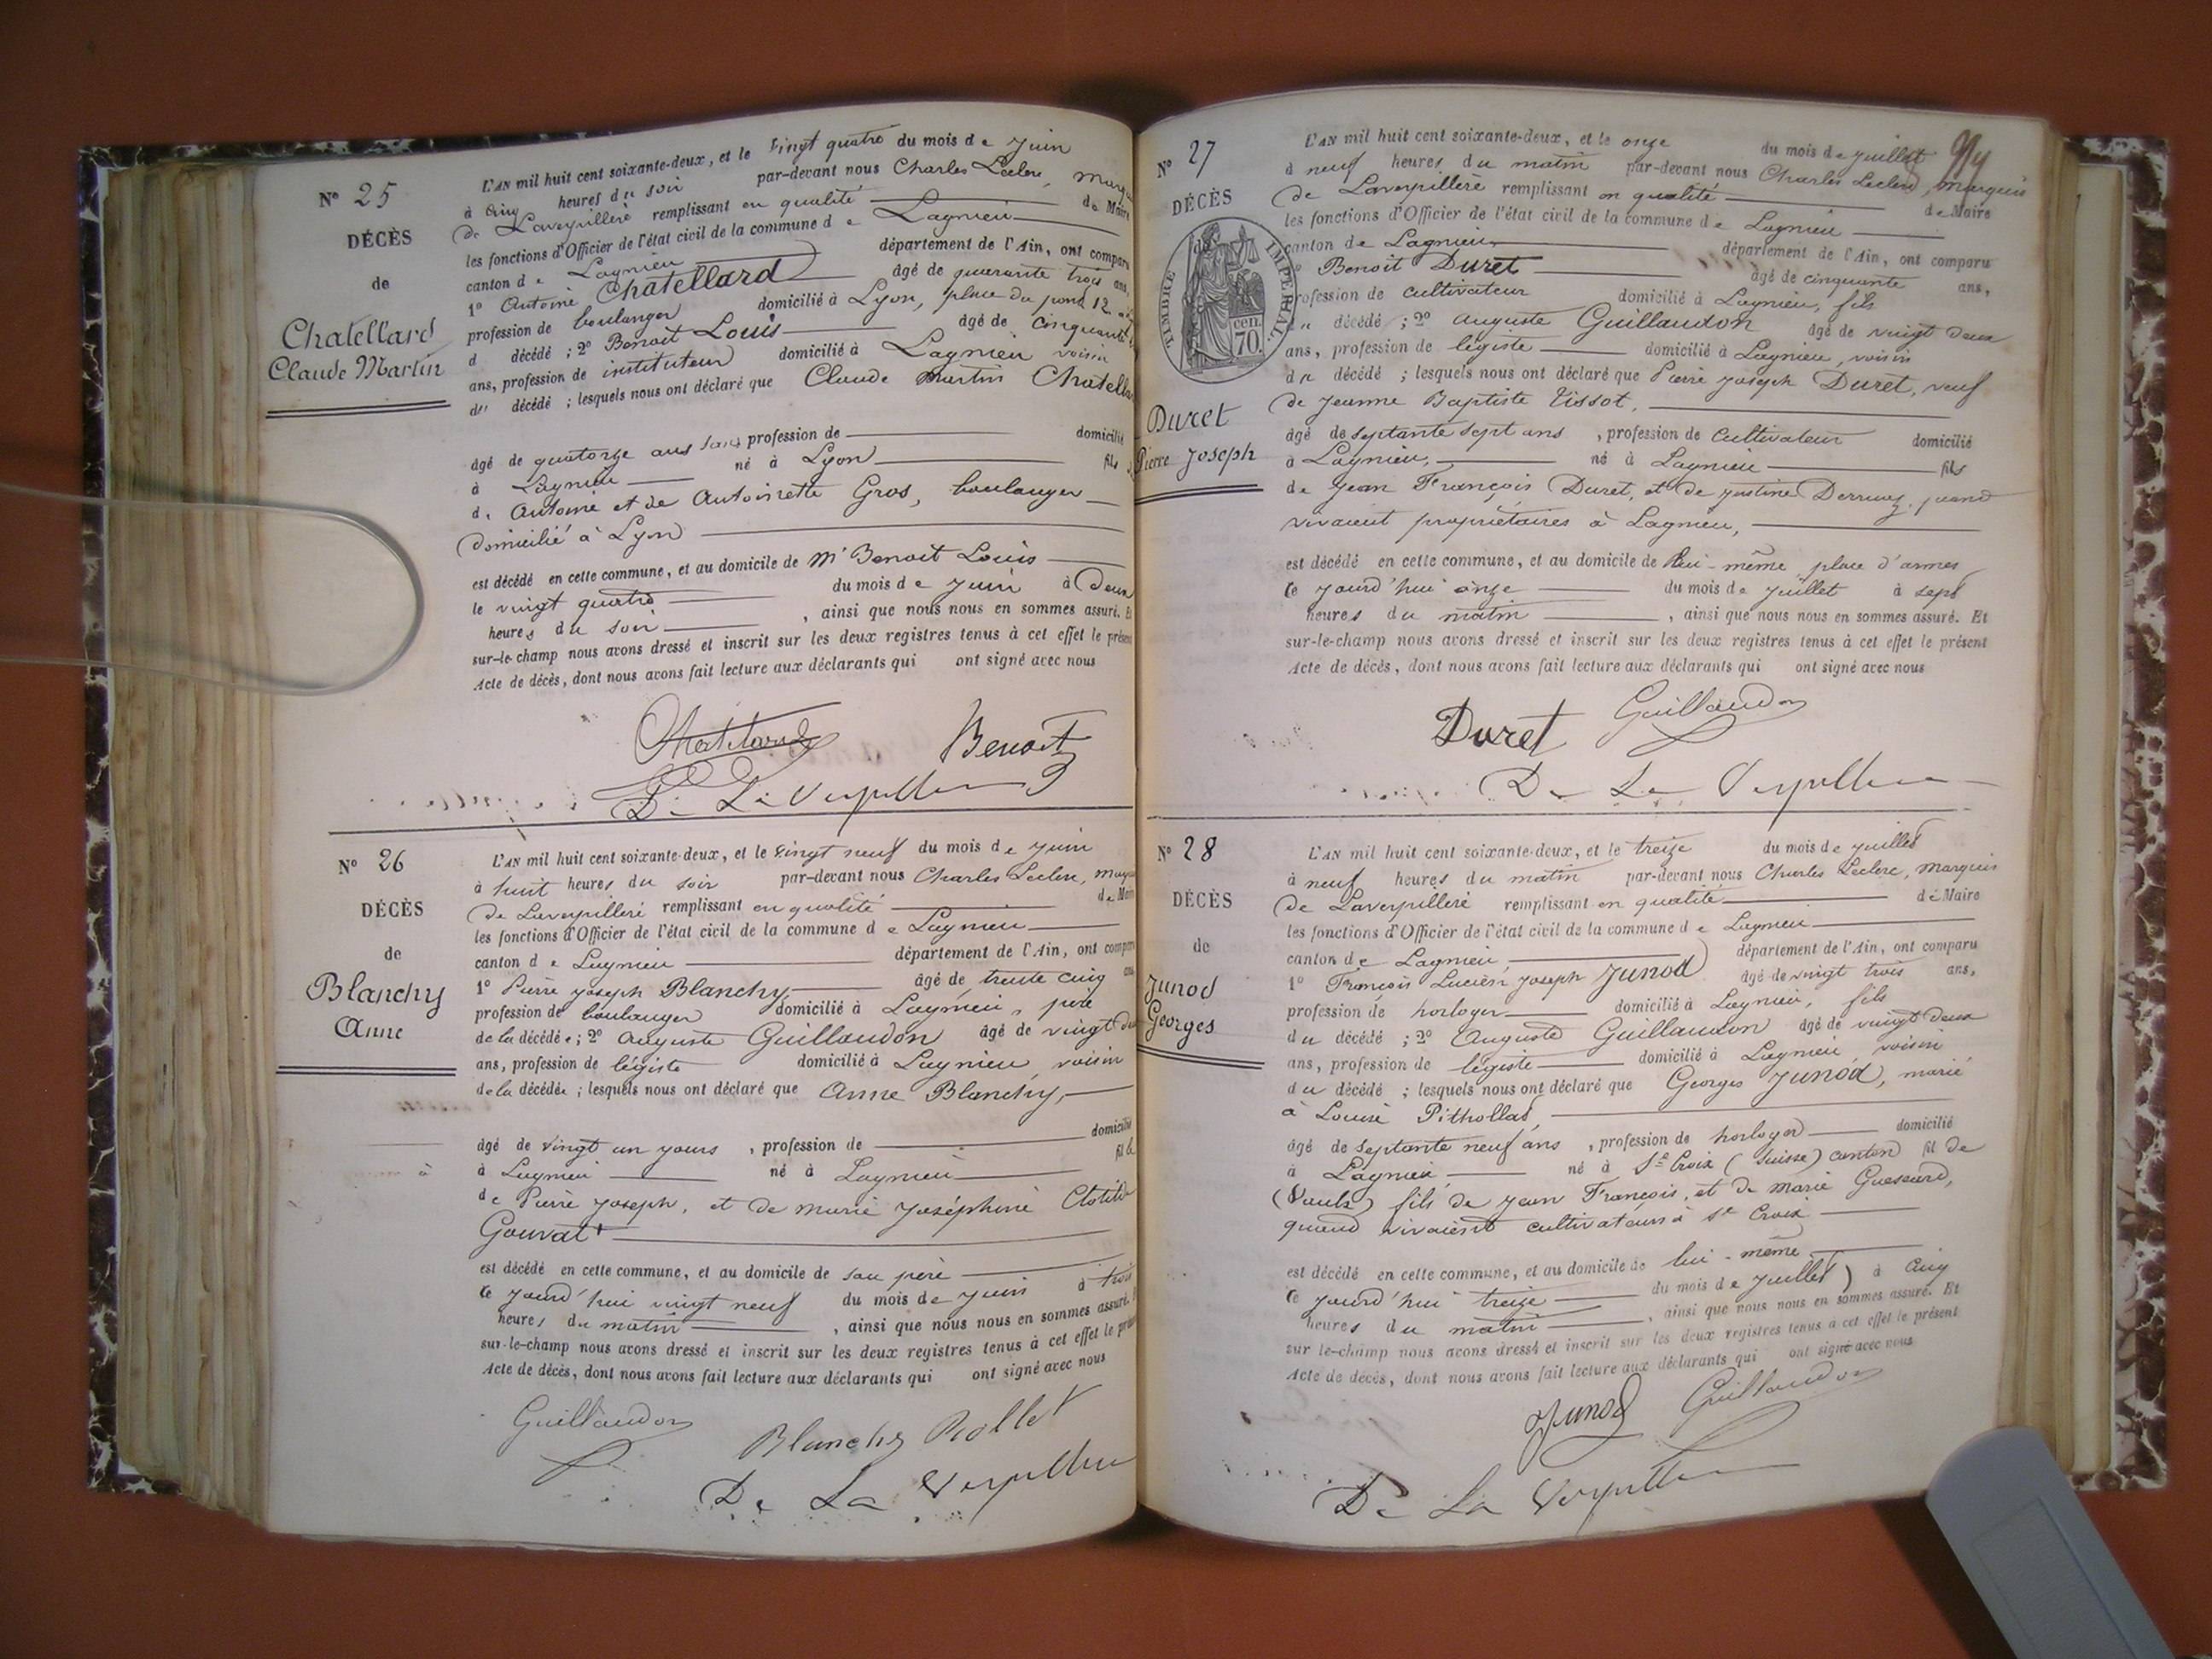 N° 25
DÉCÈS
de
Chatellard
Claude Martin
L'AN mil huit cent soixante-deux, et le vingt quatre du mois de juin
à cinq heures du soir par-devant nous Charles Leclerc, marquis
de Laverpilleré remplissant en qualité de Maire
les fonctions d'Officier de l'état civil de la commune de Lagnieu
canton de Lagnieu département de l'Ain, ont comparu
1° Antoine Chatellard âgé de quarante trois ans,
profession de boulanger domicilié à Lyon, place du pont 12
d décédé ; 2° Benoit Louis âgé de cinquante
ans, profession de instituteur domicilié à Lagnieu voisin
du décédé ; lesquels nous ont déclaré que Claude Martin Chatellard
âgé de quatorze ans sans profession de domicilié
à Lagnieu né à Lyon fils
de Antoine et de Antoinette Gros, boulanger
domicilié à Lyon
est décédé en cette commune, et au domicile de Mr Benoit Louis
le vingt quatre du mois de juin à deux
heures du soir , ainsi que nous nous en sommes assuré. Et
sur-le-champ nous avons dressé et inscrit sur les deux registres tenus à cet effet le présent
Acte de décès, dont nous avons fait lecture aux déclarants qui ont signé avec nous
Chatellard Benoit
De La Verpillere
N° 26
DÉCÈS
de
Blanchy
Anne
L'AN mil huit cent soixante-deux, et le vingt neuf du mois de juin
à huit heures du soir par-devant nous Charles Leclerc, marquis
de Laverpilleré remplissant en qualité de Maire
les fonctions d'Officier de l'état civil de la commune de Lagnieu
canton de Lagnieu département de l'Ain, ont comparu
1° Pierre Joseph Blanchy, âgé de trente cinq ans
profession de boulanger domicilié à Lagnieu, père
de la décédée ; 2° Auguste Guillaudon âgé de vingt deux
ans, profession de légiste domicilié à Lagnieu voisin
de la décédée ; lesquels nous ont déclaré que Anne Blanchy,
âgé de vingt un jours , profession de domicilié
à Lagnieu né à Lagnieu fille
de Pierre Joseph, et de Marie Joséphine Clotilde
Gouvat
est décédé en cette commune, et au domicile de son père
ce jourd'hui vingt neuf du mois de juin à trois
heures du matin , ainsi que nous nous en sommes assuré. Et
sur-le-champ nous avons dressé et inscrit sur les deux registres tenus à cet effet le présent
Acte de décès, dont nous avons fait lecture aux déclarants qui ont signé avec nous
Guillaudon Blanchy Rollet
De La Verpillere
N° 27
DÉCÈS
de
TIMBRE IMPERIAL
70 cen
Duret
Pierre Joseph
L'AN mil huit cent soixante-deux, et le onze du mois de juillet
à neuf heures du matin par-devant nous Charles Leclerc, marquis
de Laverpilleré remplissant en qualité de Maire
les fonctions d'Officier de l'état civil de la commune de Lagnieu
canton de Lagnieu, département de l'Ain, ont comparu
Benoit Duret âgé de cinquante ans,
profession de cultivateur domicilié à Lagnieu, fils
du décédé ; 2° Auguste Guillaudon âgé de vingt deux
ans, profession de légiste domicilié à Lagnieu, voisin
du décédé ; lesquels nous ont déclaré que Pierre Joseph Duret, veuf
de Jeanne Baptiste Tissot,
âgé de septante sept ans , profession de cultivateur domicilié
à Lagnieu, né à Lagnieu fils
de Jean François Duret, et de Justine Derruaz, quand
vivaient propriétaires à Lagnieu,
est décédé en cette commune, et au domicile de lui-même place d'armes
ce jourd'hui onze du mois de juillet à sept
heures du matin , ainsi que nous nous en sommes assuré. Et
sur-le-champ nous avons dressé et inscrit sur les deux registres tenus à cet effet le présent
Acte de décès, dont nous avons fait lecture aux déclarants qui ont signé avec nous
Duret Guillaudon
De La Verpillere
N° 28
DÉCÈS
de
Junod
Georges
L'AN mil huit cent soixante-deux, et le treize du mois de juillet
à neuf heures du matin par-devant nous Charles Leclerc, marquis
de Laverpilleré remplissant en qualité de Maire
les fonctions d'Officier de l'état civil de la commune de Lagnieu
canton de Lagnieu, département de l'Ain, ont comparu
1° François Lucien Joseph Junod âgé de vingt trois ans,
profession de horloger domicilié à Lagnieu, fils
du décédé ; 2° Auguste Guillaudon âgé de vingt deux
ans, profession de légiste domicilié à Lagnieu, voisin
du décédé ; lesquels nous ont déclaré que Georges Junod, marié
à Louise Pithollas,
âgé de septante neuf ans , profession de horloger domicilié
à Lagnieu, né à Ste Croix (Suisse) canton fil de
(Vault) fils de Jean François, et de Marie Guescard,
quand vivaient cultivateurs à Ste Croix
est décédé en cette commune, et au domicile de lui-même
ce jourd'hui treize du mois de juillet à cinq
heures du matin , ainsi que nous nous en sommes assuré. Et
sur le-champ nous avons dressé et inscrit sur les deux registres tenus à cet effet le présent
Acte de décès, dont nous avons fait lecture aux déclarants qui ont signé avec nous
Junod Guillaudon
De La Verpillere